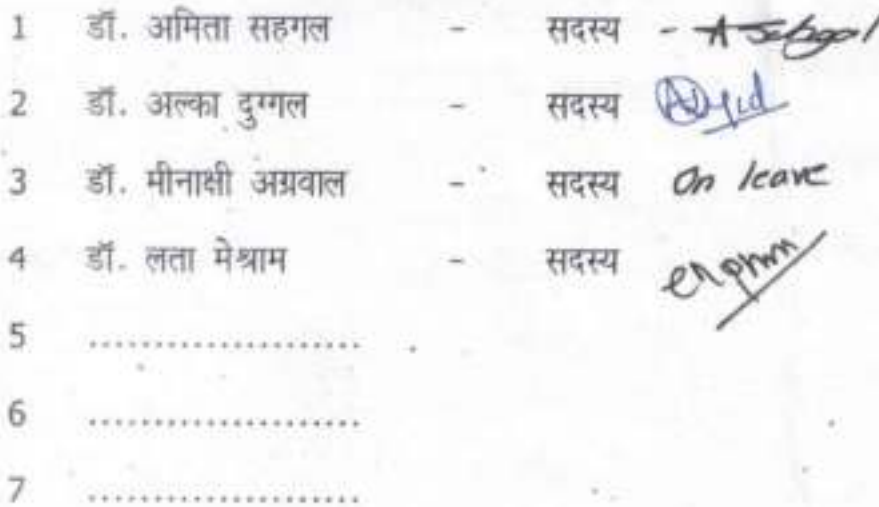 1 डॉ. अमिता सहगल - सदस्य - A Sehgal
2 डॉ. अल्का दुग्गल - सदस्य
3 डॉ. मीनाक्षी अग्रवाल - सदस्य On leave
4 डॉ. लता मेश्राम - सदस्य
5 ....................
6 ....................
7 ....................